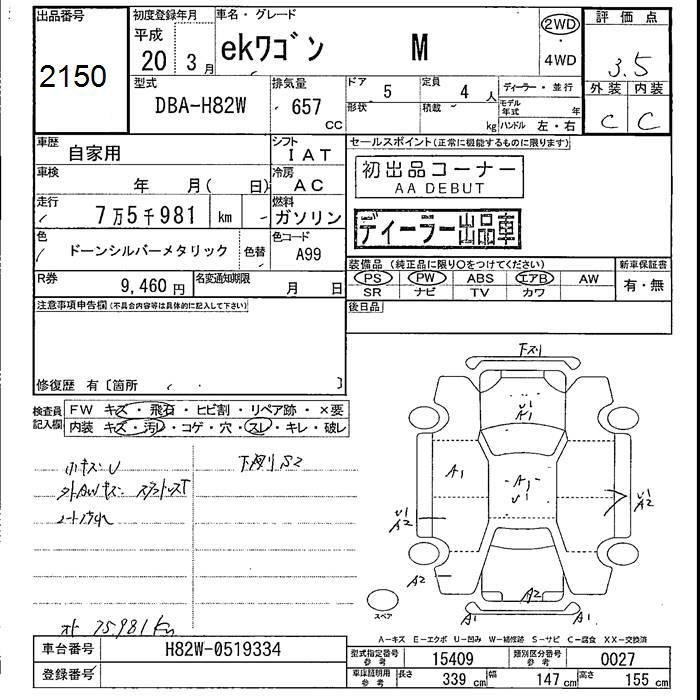 出品番号 初度登録年月 車名・グレード 評価点
2150 平成 20年 3月 ekワゴン M 2WD・4WD 3.5
外装 内装
C C
型式 排気量 ドア 5 定員 4人 ディーラー・並行
DBA-H82W 657 cc 形状 積載 kg モデル年式 年
ハンドル 左・右
車歴 自家用 シフト IAT
セールスポイント(正常に機能するものに限ります)
車検 年 月( 日) 冷房 AC
初出品コーナー
AA DEBUT
走行 7万5千981 km 燃料 ガソリン
ディーラー出品車
色 ドーンシルバーメタリック 色替 色コード A99
装備品(純正品に限り○をつけてください) 新車保証書
PS PW ABS エアB AW 有・無
SR ナビ TV カワ
R券 9,460円 名変通知期限 月 日
注意事項申告欄(不具合内容等は具体的に記入して下さい)
後日品
修復歴 有〔箇所 〕
検査員記入欄 FW キズ・飛石・ヒビ割・リペア跡・×要
内装 キズ・汚れ・コゲ・穴・スレ・キレ・破レ
小キズU
下廻りS2
下スリ
U1
A1
A1
A1
U1
U1
A2
U1
A2
A2
A2
A1
A1
スペア
75981km
A-キズ E-エクボ U-凹み W-補修跡 S-サビ C-腐食 XX-交換済
車台番号 H82W-0519334
登録番号
型式指定番号 参考 15409 類別区分番号 参考 0027
車庫証明用 参考 長さ 339cm 幅 147cm 高さ 155cm